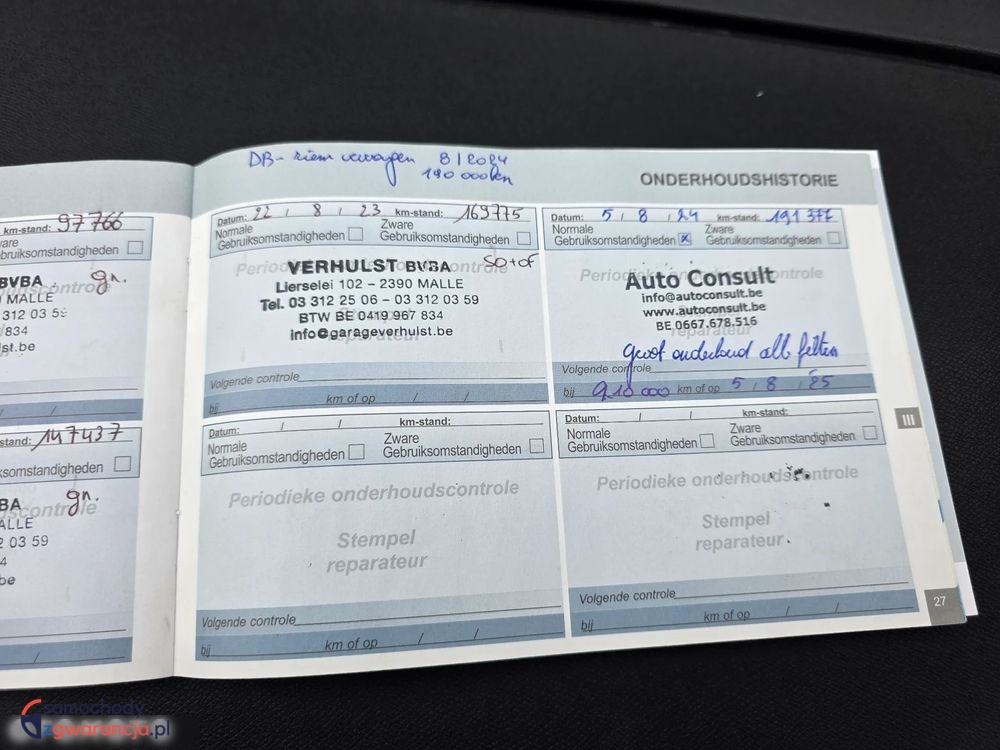 DB-riem vervangen 8/2024
190 000km
ONDERHOUDSHISTORIE
km-stand: 97766
Zware
Gebruiksomstandigheden
BVBA gr.
MALLE
312 03 59
834
st.be
/ /
stand: 147437
Gebruiksomstandigheden
BVBA gr.
MALLE
2 03 59
4
be
/
Datum: 22 / 8 / 23 km-stand: 169775
Normale Zware
Gebruiksomstandigheden Gebruiksomstandigheden
Periodieke onderhoudscontrole
VERHULST BVBA
Lierselei 102 – 2390 MALLE
Tel. 03 312 25 06 – 03 312 03 59
BTW BE 0419 967 834
info@garageverhulst.be
reparateur
Volgende controle
bij km of op / /
Datum: 5 / 8 / 24 km-stand: 191 377
Normale Zware
Gebruiksomstandigheden x Gebruiksomstandigheden
Periodieke onderhoudscontrole
Auto Consult
info@autoconsult.be
www.autoconsult.be
BE 0667.678.516
reparateur
groot onderhoud alle filters
Volgende controle
bij 210 000 km of op 5 / 8 / 25
Datum: / / km-stand:
Normale Zware
Gebruiksomstandigheden Gebruiksomstandigheden
Periodieke onderhoudscontrole
Stempel
reparateur
Volgende controle
bij km of op / /
Datum: / / km-stand:
Normale Zware
Gebruiksomstandigheden Gebruiksomstandigheden
Periodieke onderhoudscontrole
Stempel
reparateur
Volgende controle
bij km of op / /
III
27
samochody
zgwarancja.pl